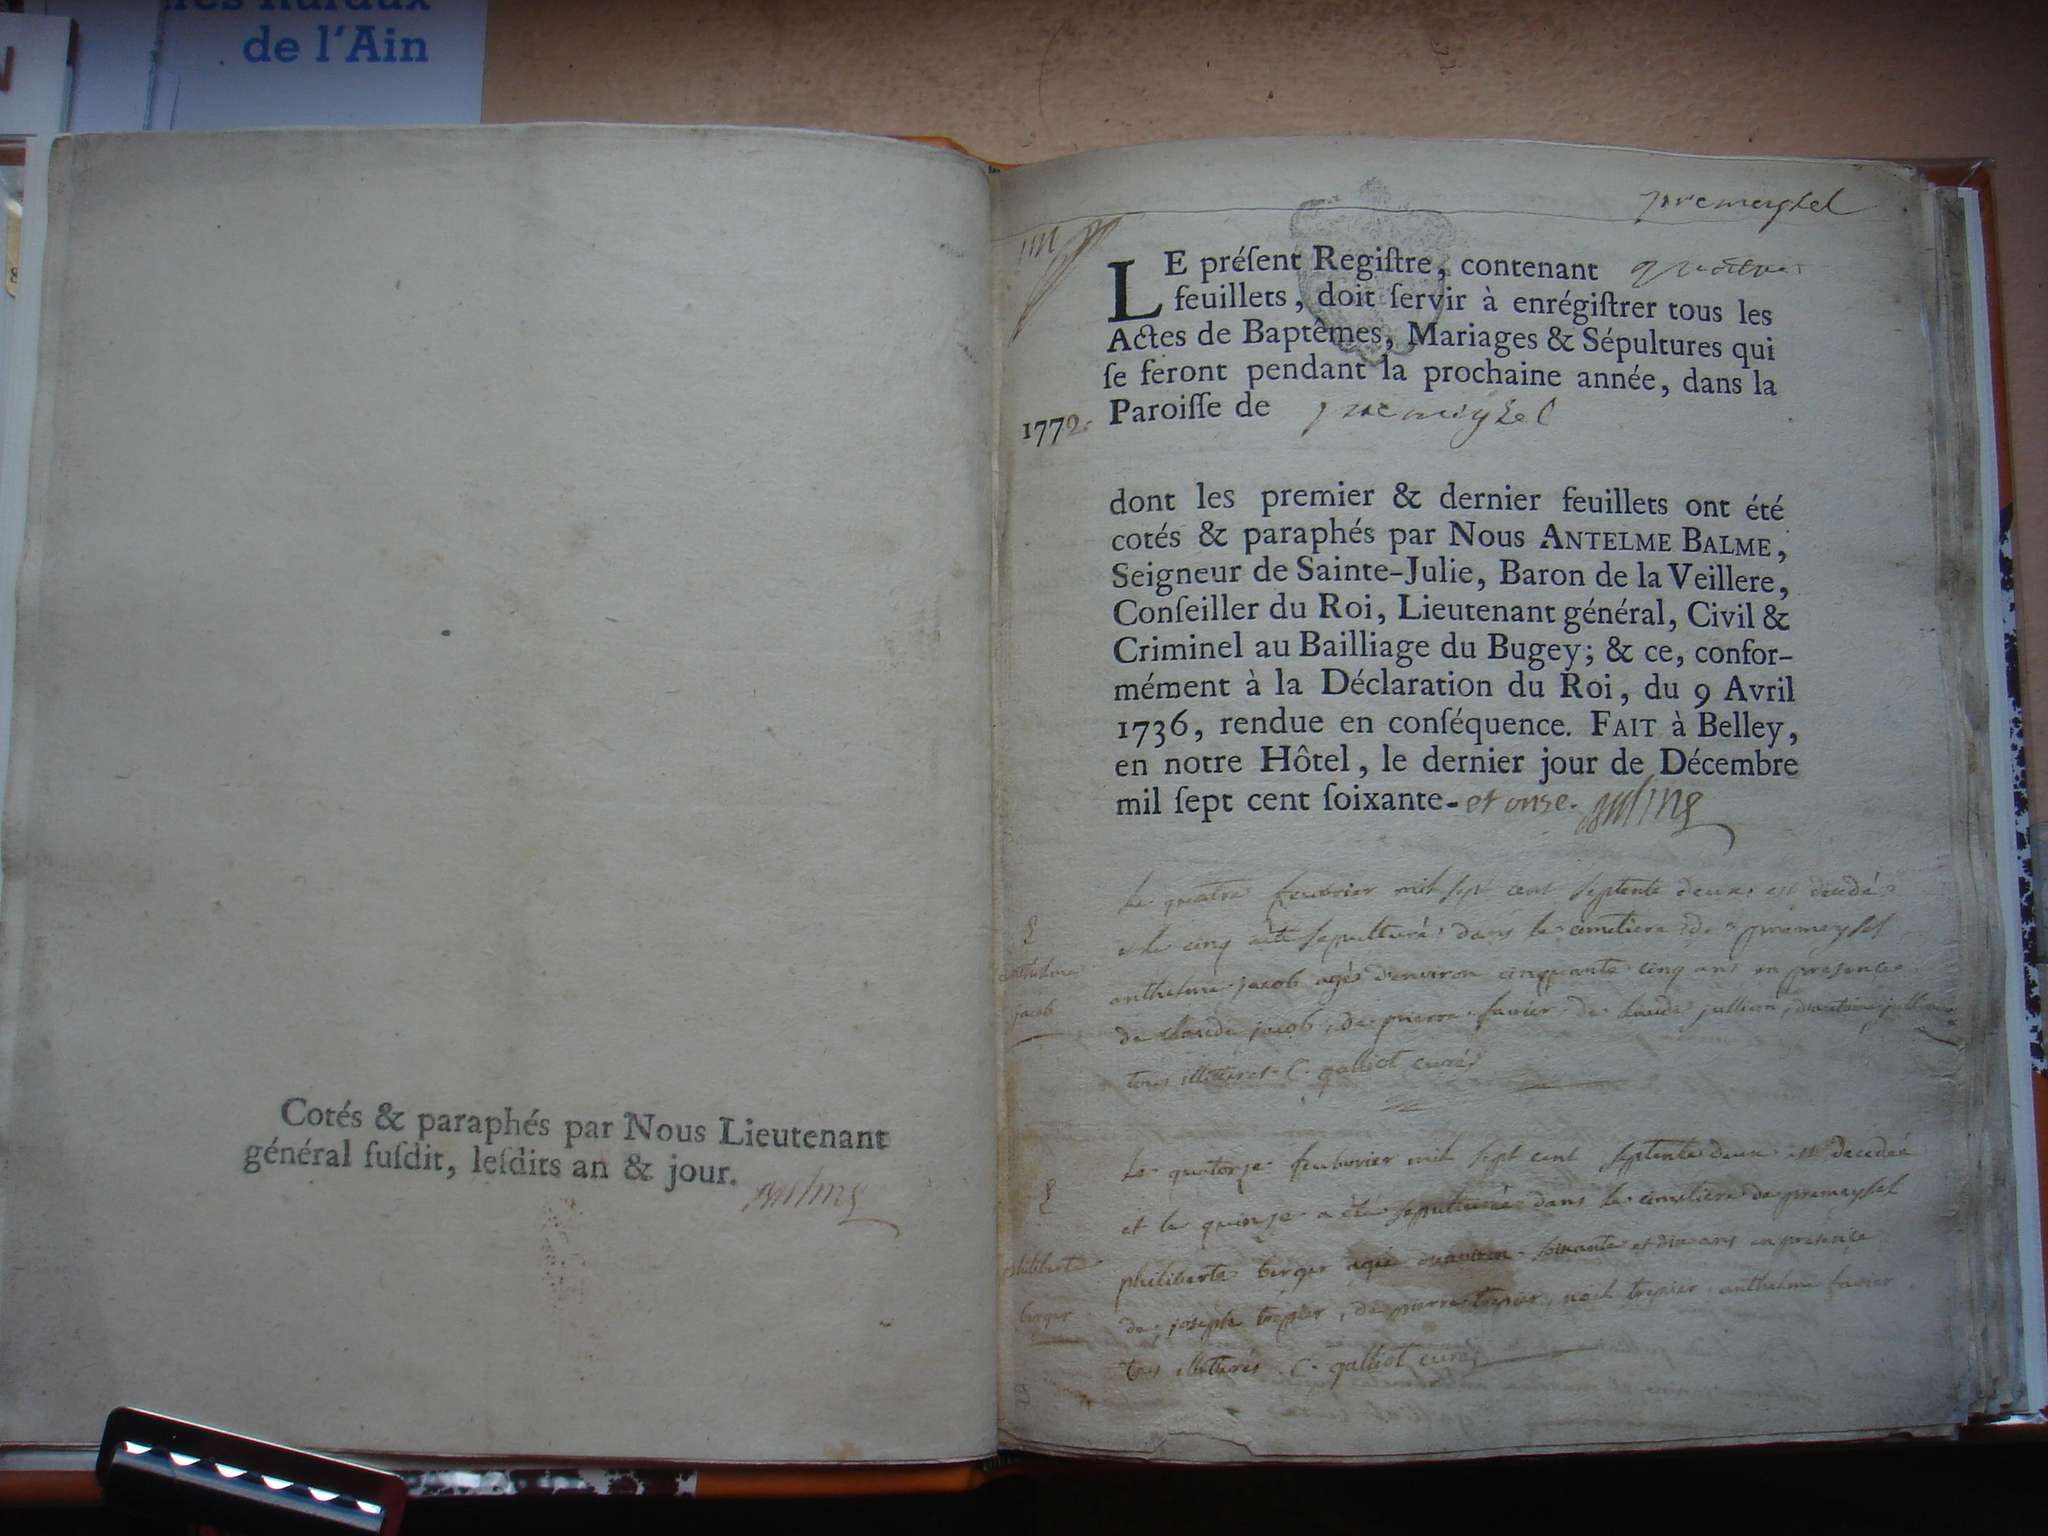 de l'Ain
Cotés & paraphés par Nous Lieutenant
général ſuſdit, leſdits an & jour.
premeyzel
LE préſent Regiſtre, contenant quatre
feuillets, doit ſervir à enrégiſtrer tous les
Actes de Baptêmes, Mariages & Sépultures qui
ſe feront pendant la prochaine année, dans la
1772. Paroiſſe de premeyzel
dont les premier & dernier feuillets ont été
cotés & paraphés par Nous ANTELME BALME,
Seigneur de Sainte-Julie, Baron de la Veillere,
Conſeiller du Roi, Lieutenant général, Civil &
Criminel au Bailliage du Bugey; & ce, confor-
mément à la Déclaration du Roi, du 9 Avril
1736, rendue en conſéquence. FAIT à Belley,
en notre Hôtel, le dernier jour de Décembre
mil ſept cent ſoixante-et onze.
Le quatre feubvrier mil sept cent septente deux est decedé
et le cinq sepulturé dans le cimetiere de premeyzel
anthelme
anthelme jacob agé denviron cinquante cinq ans en presence
jacob
de claude jacob, de pierre favier, de claude jullien, dantoine jullien
tous illitterés C. galliot curé
Le quatorze feubvrier mil sept cent septente deux est decedeé
et le quinze a été sepulturée dans le cimetiere de premeyzel
philiberte
philiberte berger ageé denviron soixante et dix ans en presence
berger
de joseph trepier, de pierre trepier, noel trepier, anthelme favier
tous illitterés C. galliot curé